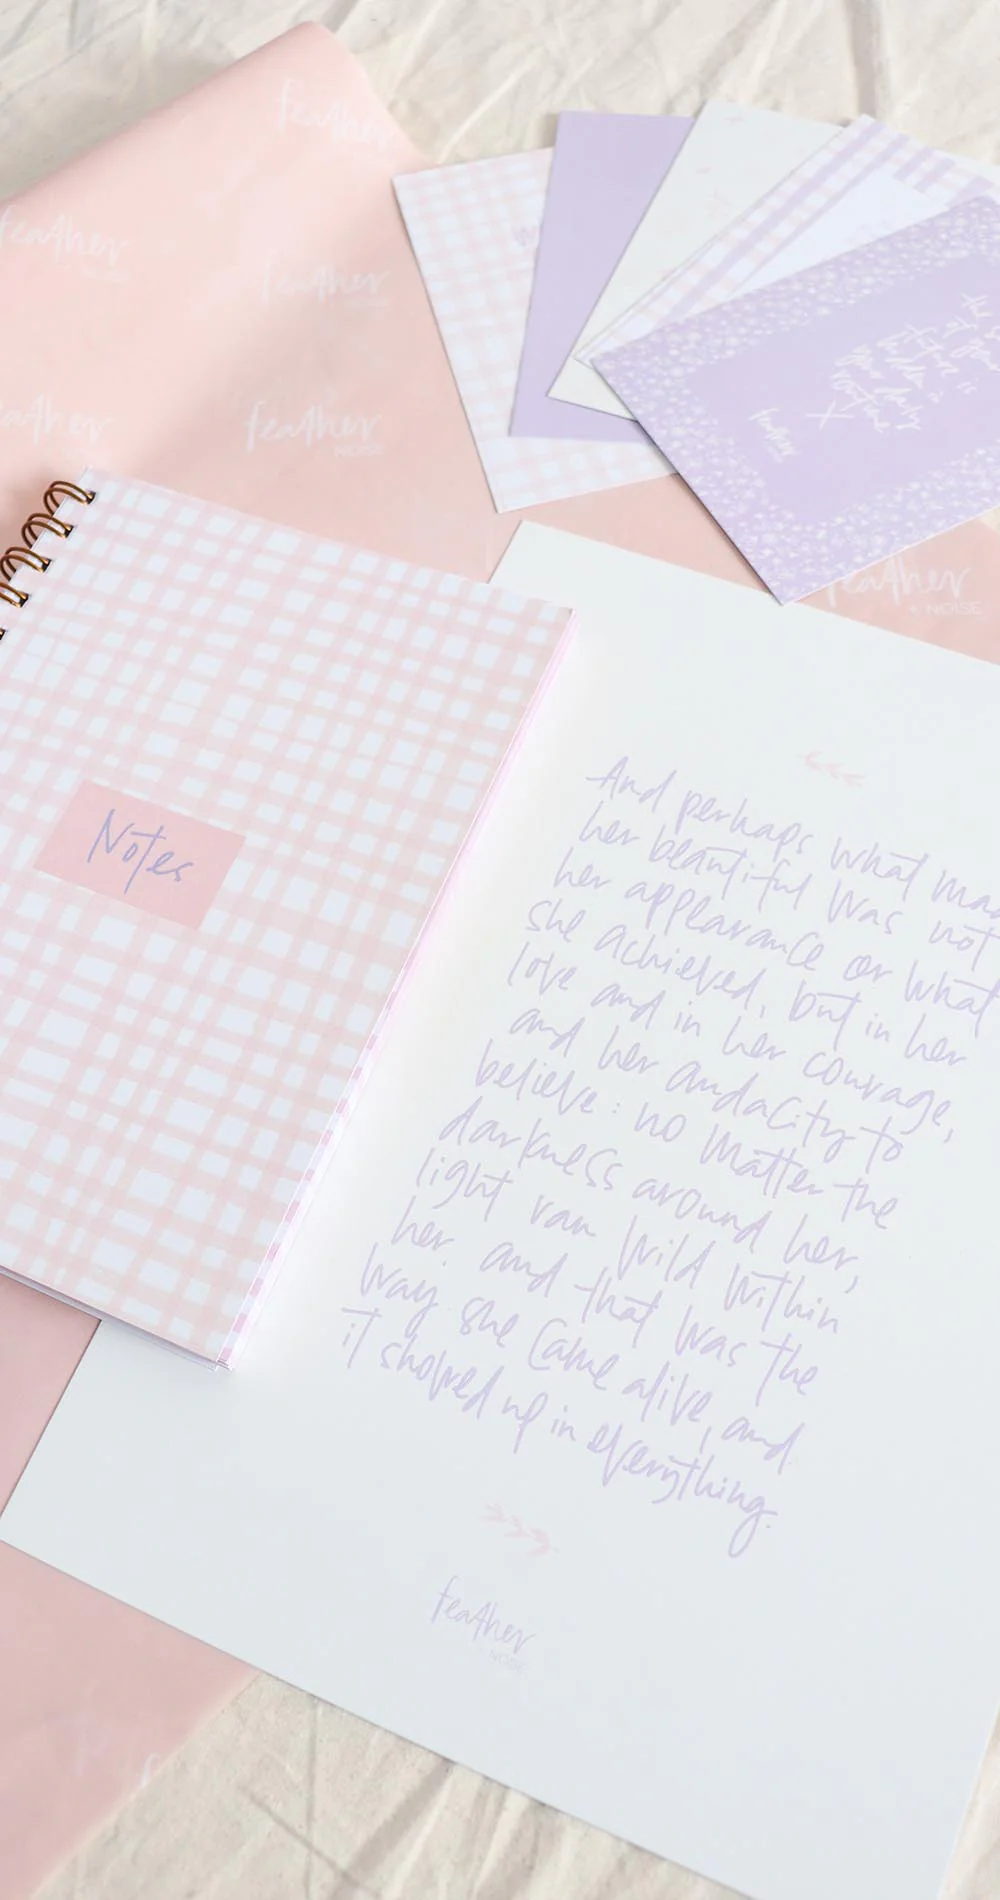 feather
feather
feather
NOISE
feather
feather
NOISE
feather
+ NOISE
feather
Notes
And perhaps what
her beautiful was not
her appearance or what
she achieved, but in her
love and in her courage,
and her audacity to
believe: no matter the
darkness around her,
light ran wild within
her. and that was the
way she came alive, and
it showed up in everything.
feather
NOISE